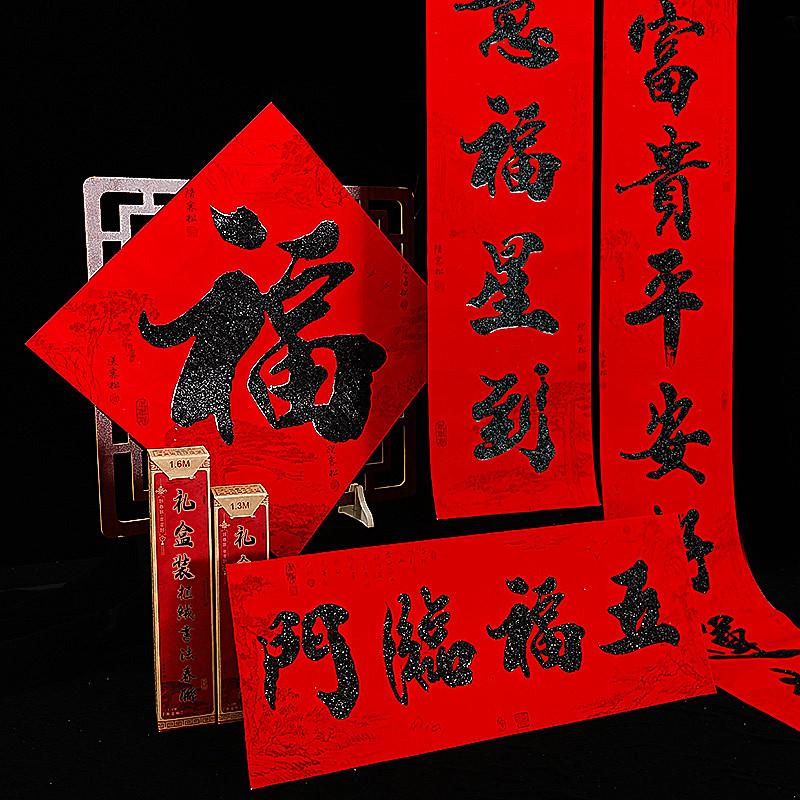 富貴平安
意福星到
福
五福臨門
1.6M
礼盒装植绒書法春聯
1.3M
礼盒